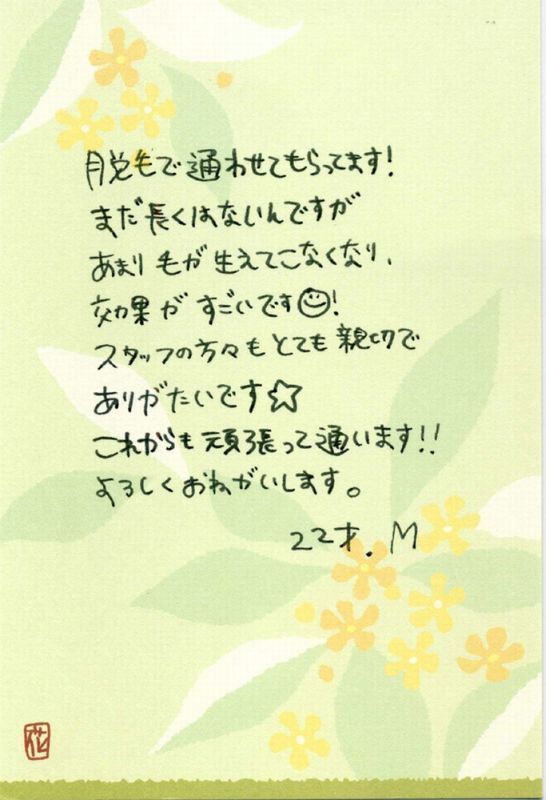 脱毛で通わせてもらってます!
まだ長くはないんですが
あまり毛が生えてこなくなり、
効果がすごいです☺!
スタッフの方々もとても親切で
ありがたいです☆
これからも頑張って通います!!
よろしくおねがいします。
22才. M
花